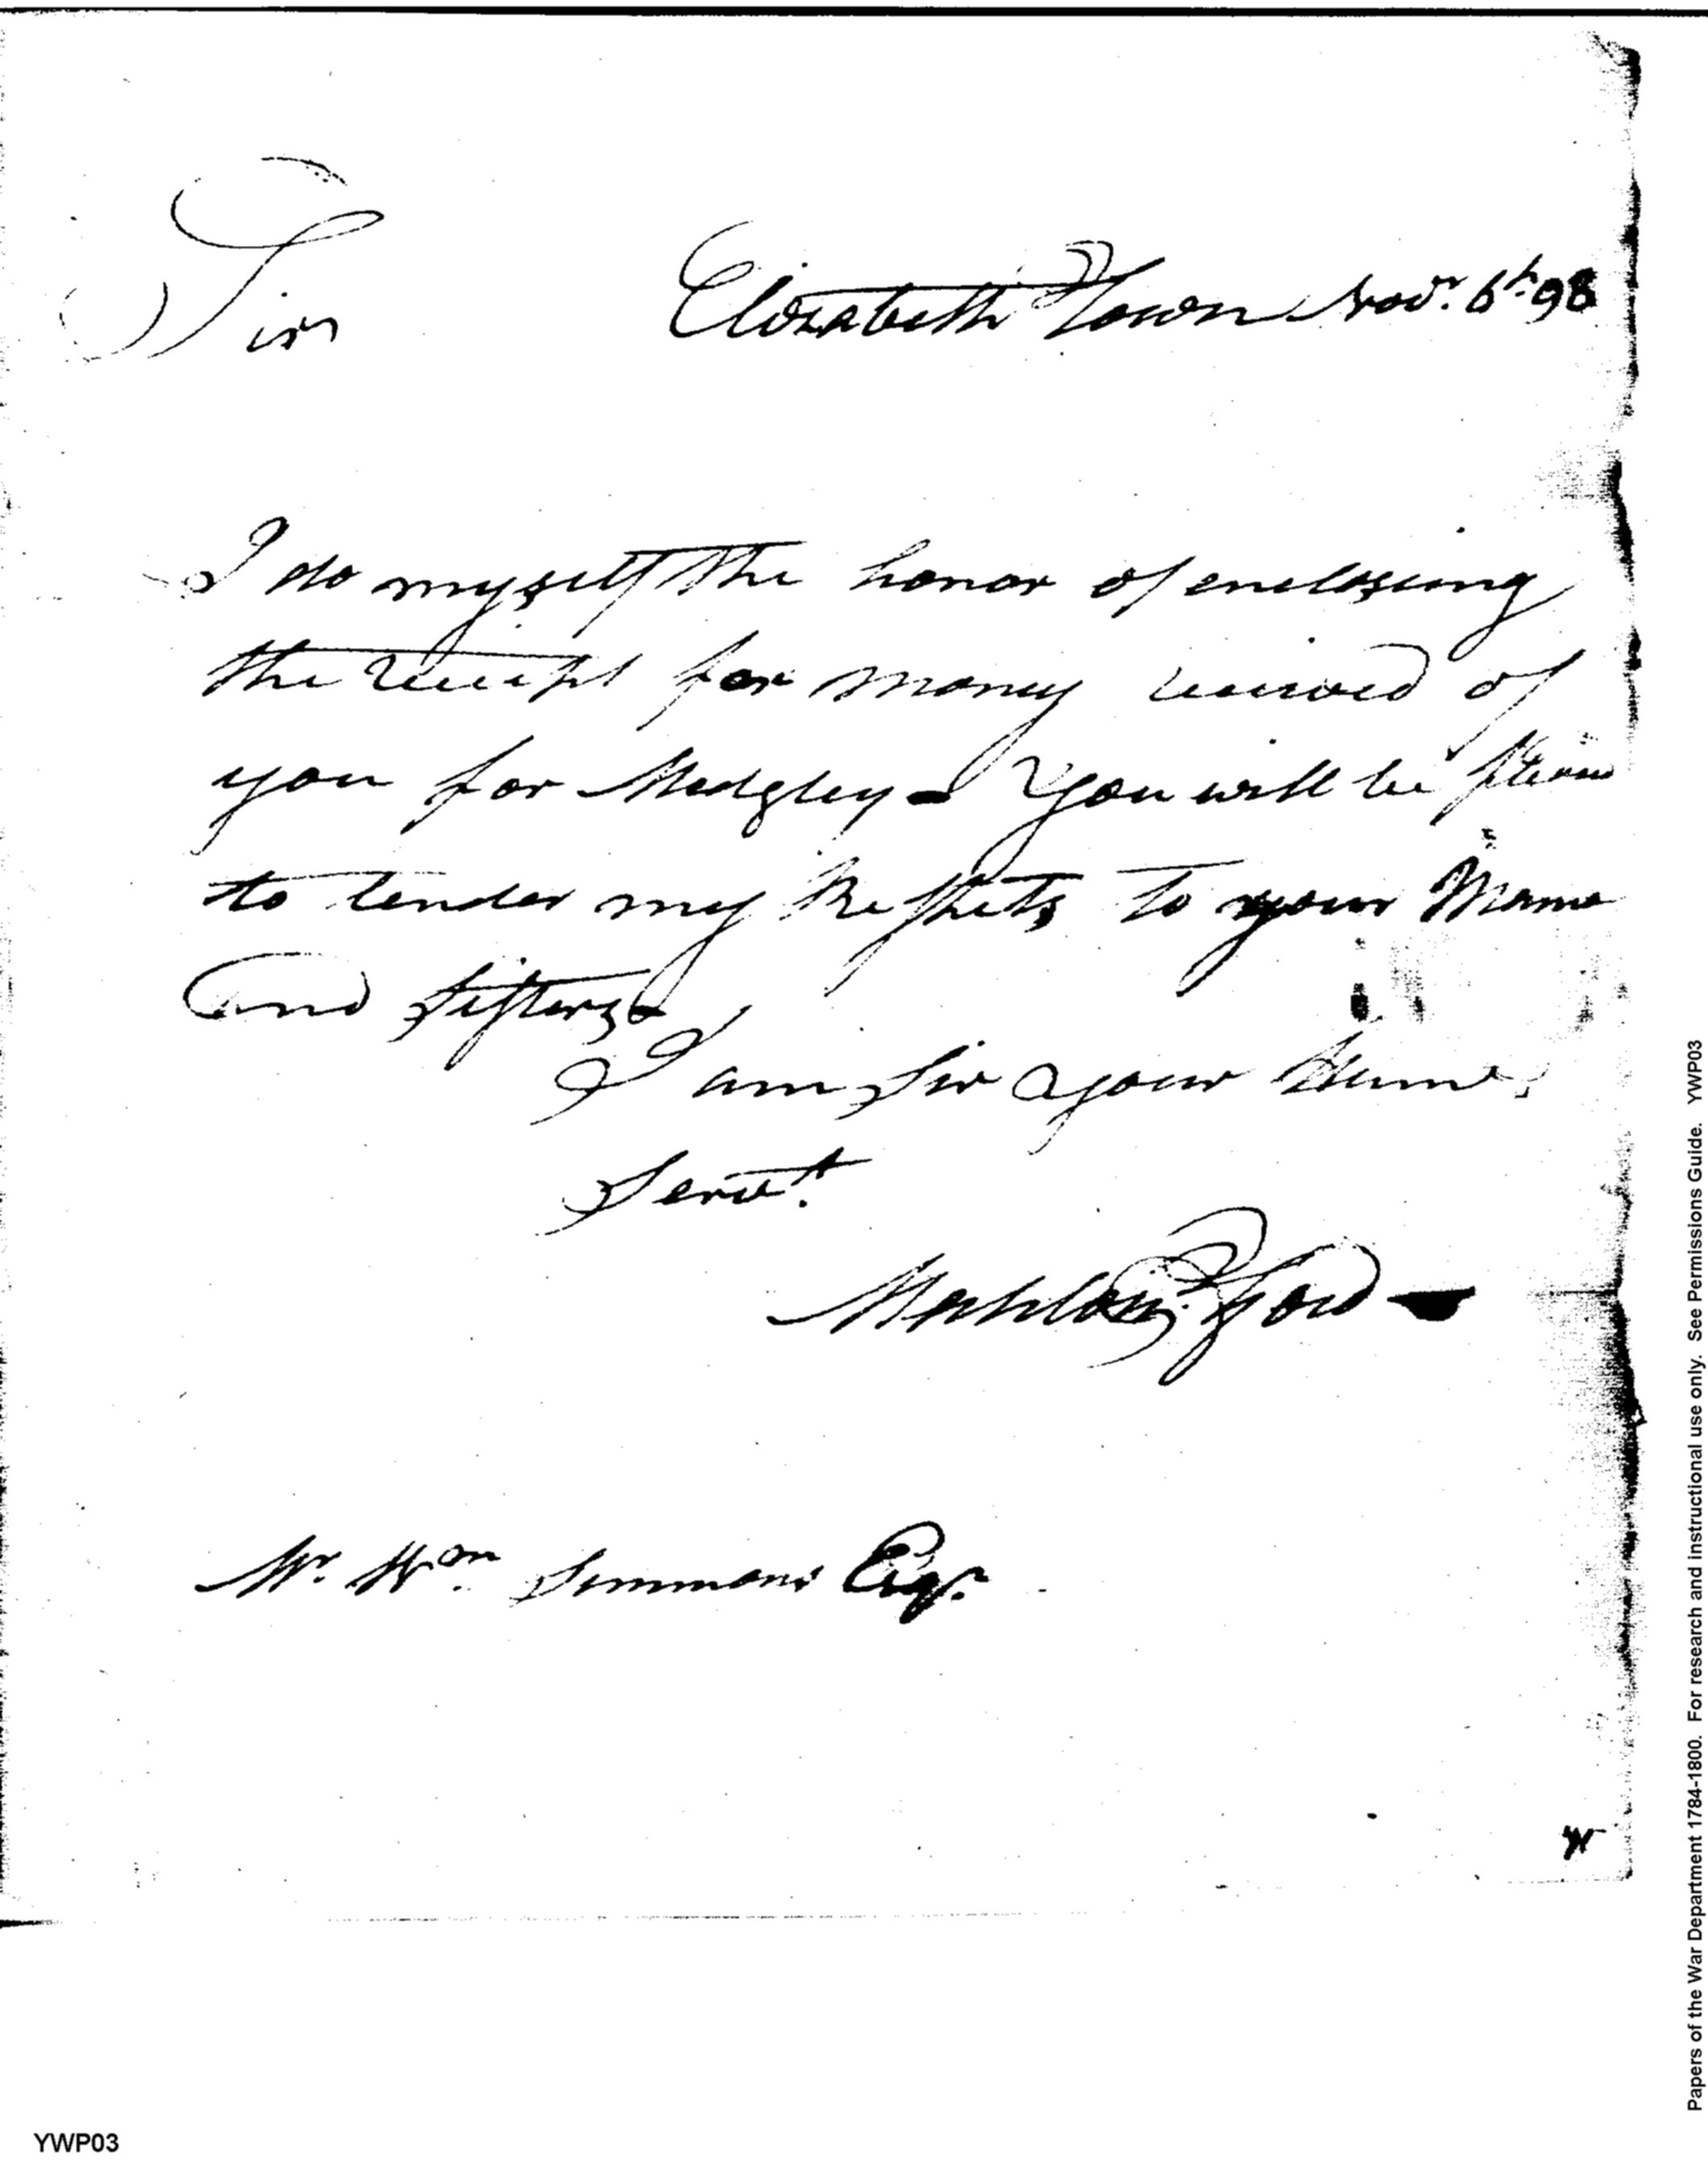 Sir
Elizabeth Town Novr. 6th. 98
I do myself the honor of enclosing
the receipt for money received of
you for Medgley - You will be pleas
to tender my Respects to your Mama
and Sisters
I am Sir your Hume.
Servt.
Mahlon Ford
Mr. Wm. Simmons Esqr.
W
YWP03
Papers of the War Department 1784-1800. For research and instructional use only. See Permissions Guide. YWP03